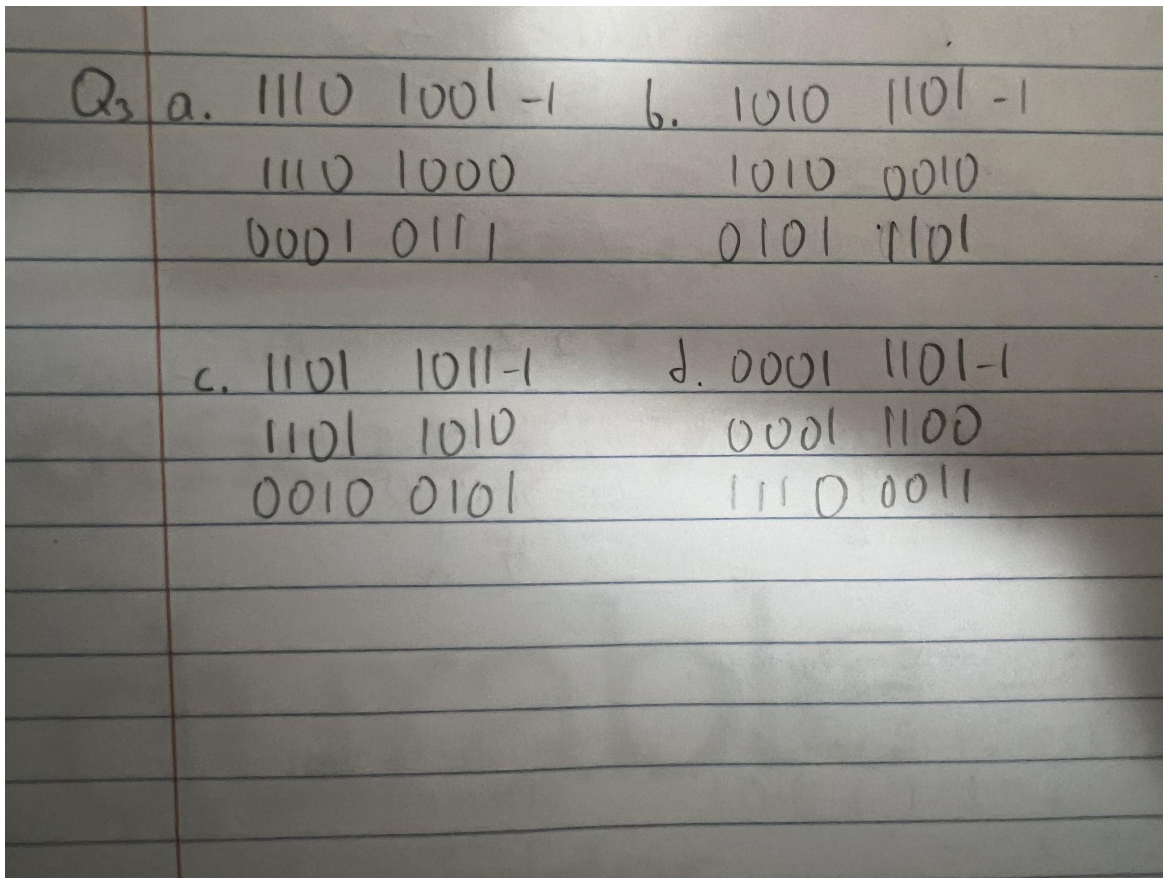 Q3 a. 1110 1001 -1
1110 1000
0001 0111
b. 1010 1101 -1
1010 0010
0101 1101
c. 1101 1011-1
1101 1010
0010 0101
d. 0001 1101-1
0001 1100
1110 0011